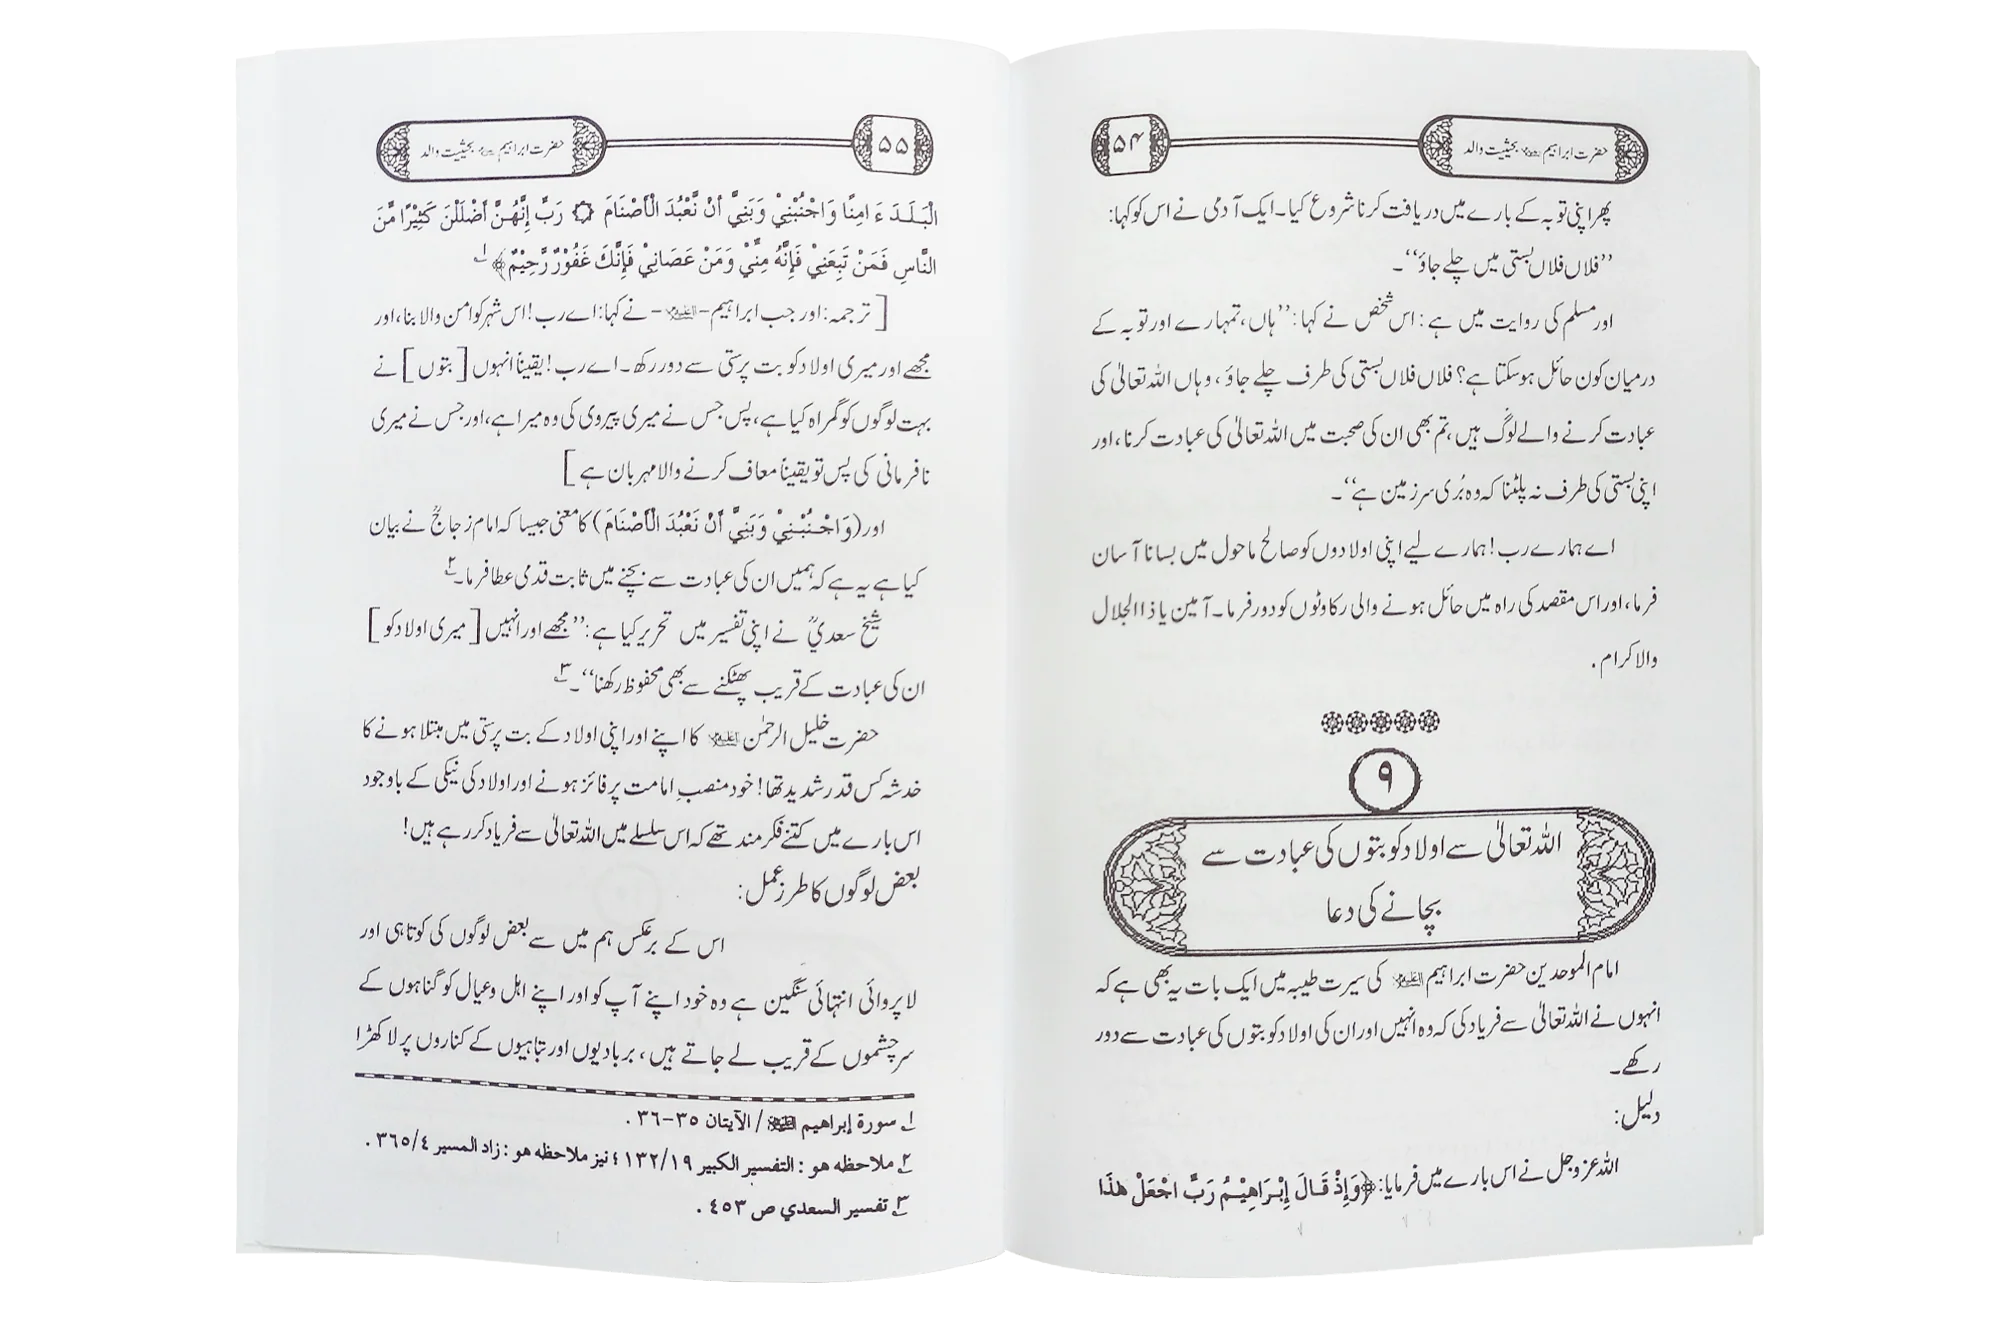 حضرت ابراہیم علیہ السلام بحیثیت والد
۵۴
پھر اپنی توبہ کے بارے میں دریافت کرنا شروع کیا۔ ایک آدمی نے اس کو کہا:
’’فلاں فلاں بستی میں چلے جاؤ‘‘۔
اور مسلم کی روایت میں ہے: اس شخص نے کہا: ’’ہاں، تمہارے اور توبہ کے
درمیان کون حائل ہو سکتا ہے؟ فلاں فلاں بستی کی طرف چلے جاؤ، وہاں اللہ تعالیٰ کی
عبادت کرنے والے لوگ ہیں، تم بھی ان کی صحبت میں اللہ تعالیٰ کی عبادت کرنا، اور
اپنی بستی کی طرف نہ پلٹنا کہ وہ بُری سرزمین ہے‘‘۔
اے ہمارے رب! ہمارے لیے اپنی اولادوں کو صالح ماحول میں بسانا آسان
فرما، اور اس مقصد کی راہ میں حائل ہونے والی رکاوٹوں کو دور فرما۔ آمین یا ذا الجلال
والاکرام.
۹
اللہ تعالیٰ سے اولاد کو بتوں کی عبادت سے
بچانے کی دعا
امام الموحدین حضرت ابراہیم علیہ السلام کی سیرت طیبہ میں ایک بات یہ بھی ہے کہ
انہوں نے اللہ تعالیٰ سے فریاد کی کہ وہ انہیں اور ان کی اولاد کو بتوں کی عبادت سے دور
رکھے۔
دلیل:
اللہ عزوجل نے اس بارے میں فرمایا: ﴿وَإِذْ قَالَ إِبْرَاهِيْمُ رَبِّ اجْعَلْ هٰذَا
۵۵
حضرت ابراہیم علیہ السلام بحیثیت والد
الْبَلَدَ ءَامِنًا وَاجْنُبْنِيْ وَبَنِيَّ أَنْ نَّعْبُدَ الْأَصْنَامَ ۞ رَبِّ إِنَّهُنَّ أَضْلَلْنَ كَثِيْرًا مِّنَ
النَّاسِ فَمَنْ تَبِعَنِيْ فَإِنَّهُ مِنِّيْ وَمَنْ عَصَانِيْ فَإِنَّكَ غَفُوْرٌ رَّحِيْمٌ﴾ ۱؎
[ترجمہ: اور جب ابراہیم-علیہ السلام- نے کہا: اے رب! اس شہر کو امن والا بنا، اور
مجھے اور میری اولاد کو بت پرستی سے دور رکھ۔ اے رب! یقیناً انہوں [بتوں] نے
بہت لوگوں کو گمراہ کیا ہے، پس جس نے میری پیروی کی وہ میرا ہے، اور جس نے میری
نافرمانی کی پس تو یقیناً معاف کرنے والا مہربان ہے]
اور (وَاجْنُبْنِيْ وَبَنِيَّ أَنْ نَعْبُدَ الْأَصْنَامَ) کا معنی جیسا کہ امام زجاجؒ نے بیان
کیا ہے یہ ہے کہ ہمیں ان کی عبادت سے بچنے میں ثابت قدمی عطا فرما۔ ۲؎
شیخ سعدیؒ نے اپنی تفسیر میں تحریر کیا ہے: ’’مجھے اور انہیں [میری اولاد کو]
ان کی عبادت کے قریب پھٹکنے سے بھی محفوظ رکھنا‘‘۔ ۳؎
حضرت خلیل الرحمٰن علیہ السلام کا اپنے اور اپنی اولاد کے بت پرستی میں مبتلا ہونے کا
خدشہ کس قدر شدید تھا! خود منصبِ امامت پر فائز ہونے اور اولاد کی نیکی کے باوجود
اس بارے میں کتنے فکر مند تھے کہ اس سلسلے میں اللہ تعالیٰ سے فریاد کر رہے ہیں!
بعض لوگوں کا طرز عمل:
اس کے برعکس ہم میں سے بعض لوگوں کی کوتاہی اور
لاپروائی انتہائی سنگین ہے وہ خود اپنے آپ کو اور اپنے اہل وعیال کو گناہوں کے
سرچشموں کے قریب لے جاتے ہیں، بربادیوں اور تباہیوں کے کناروں پر لا کھڑا
۱؎ سورة إبراهيم علیہ السلام / الآيتان ٣٥-٣٦ .
۲؎ ملاحظہ ہو : التفسير الكبير ١٣٢/١٩؛ نیز ملاحظہ ہو : زاد المسير ٣٦٥/٤ .
۳؎ تفسير السعدي ص ٤٥٣ .